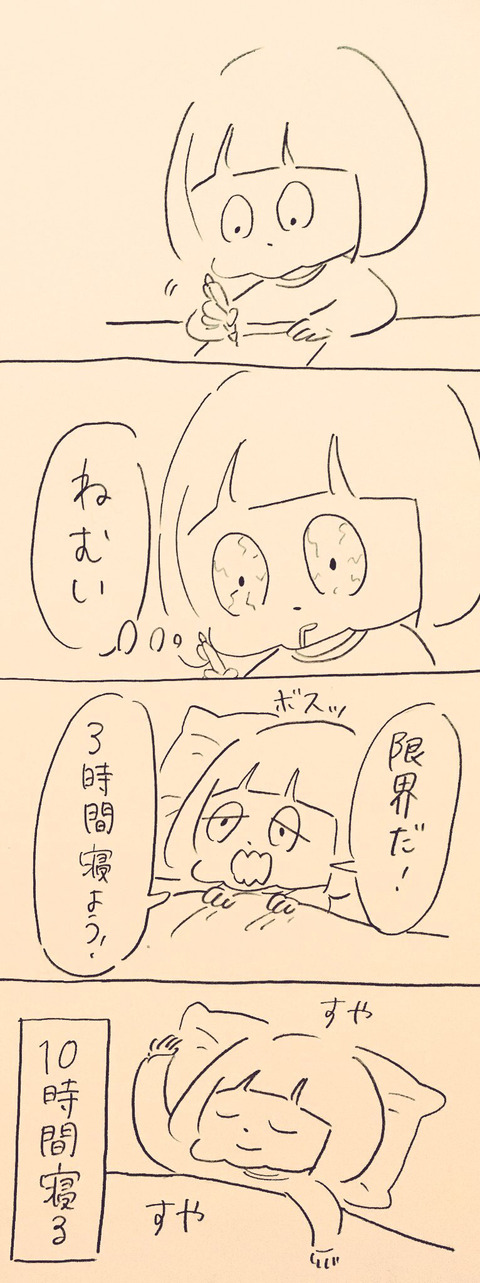 ねむい
ボスッ
限界だ!
3時間寝よう!
すや
10時間寝る
すや